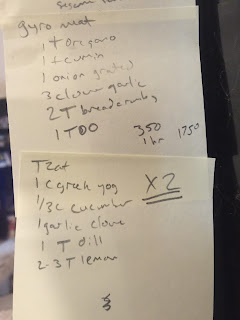 Sesame
gyro meat
1 T Oregano
1 t cumin
1 onion grated
3 cloves garlic
2 T breadcrumbs
1 T OO 350 1750
1 hr
Tzat
1 C greek yog
X2
1/3 c cucumber
1 garlic clove
1 T dill
2-3 T lemon